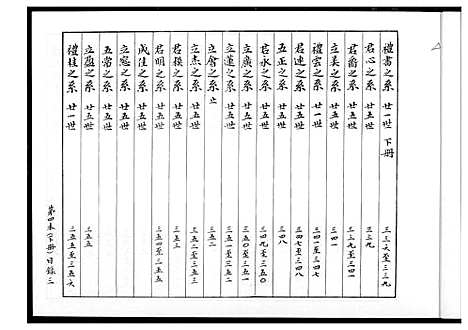 禮書之系 廿一世 下冊 三三六至三三九
君心之系 廿五世 三三九
君喬之系 廿五世 三三九至三四一
立美之系 廿五世 三四一
禮雲之系 廿一世 三四一至三四七
君連之系 廿五世 三四七至三四八
五正之系 廿五世 三四八
君永之系 廿五世 三四九至三五〇
立廣之系 廿五世 三五〇至三五一
立蓮之系 廿五世 三五一至三五二
立會之系 止 三五二
立杰之系 廿五世 三五二至三五三
君積之系 廿五世 三五三
君明之系 廿五世 三五四至三五五
成佳之系 廿五世
立寇之系 廿五世
五常之系 廿五世 三五五
立融之系 廿五世
禮桂之系 廿一世 三五五至三五六
第四本(下冊)目錄三